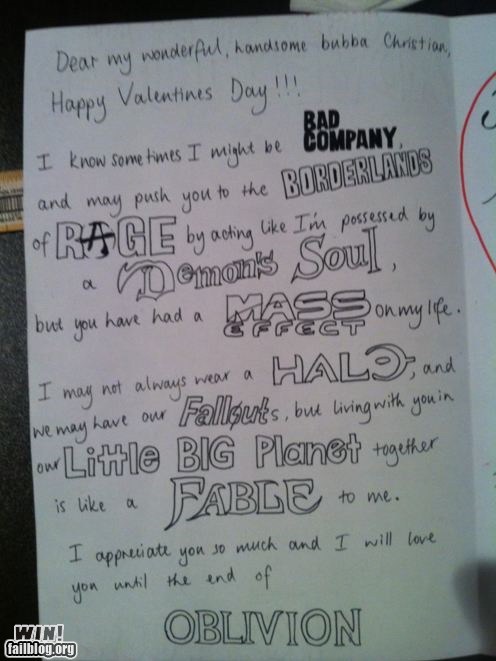 Dear my wonderful, handsome bubba Christian,
Happy Valentines Day!!!
I know sometimes I might be BAD COMPANY,
and may push you to the BORDERLANDS
of RAGE by acting like I'm possessed by
a Demon's Soul,
but you have had a MASS EFFECT on my life.
I may not always wear a HALO, and
we may have our Fallouts, but living with you in
our Little BIG Planet together
is like a FABLE to me.
I appreciate you so much and I will love
you until the end of
OBLIVION
WIN!
failblog.org